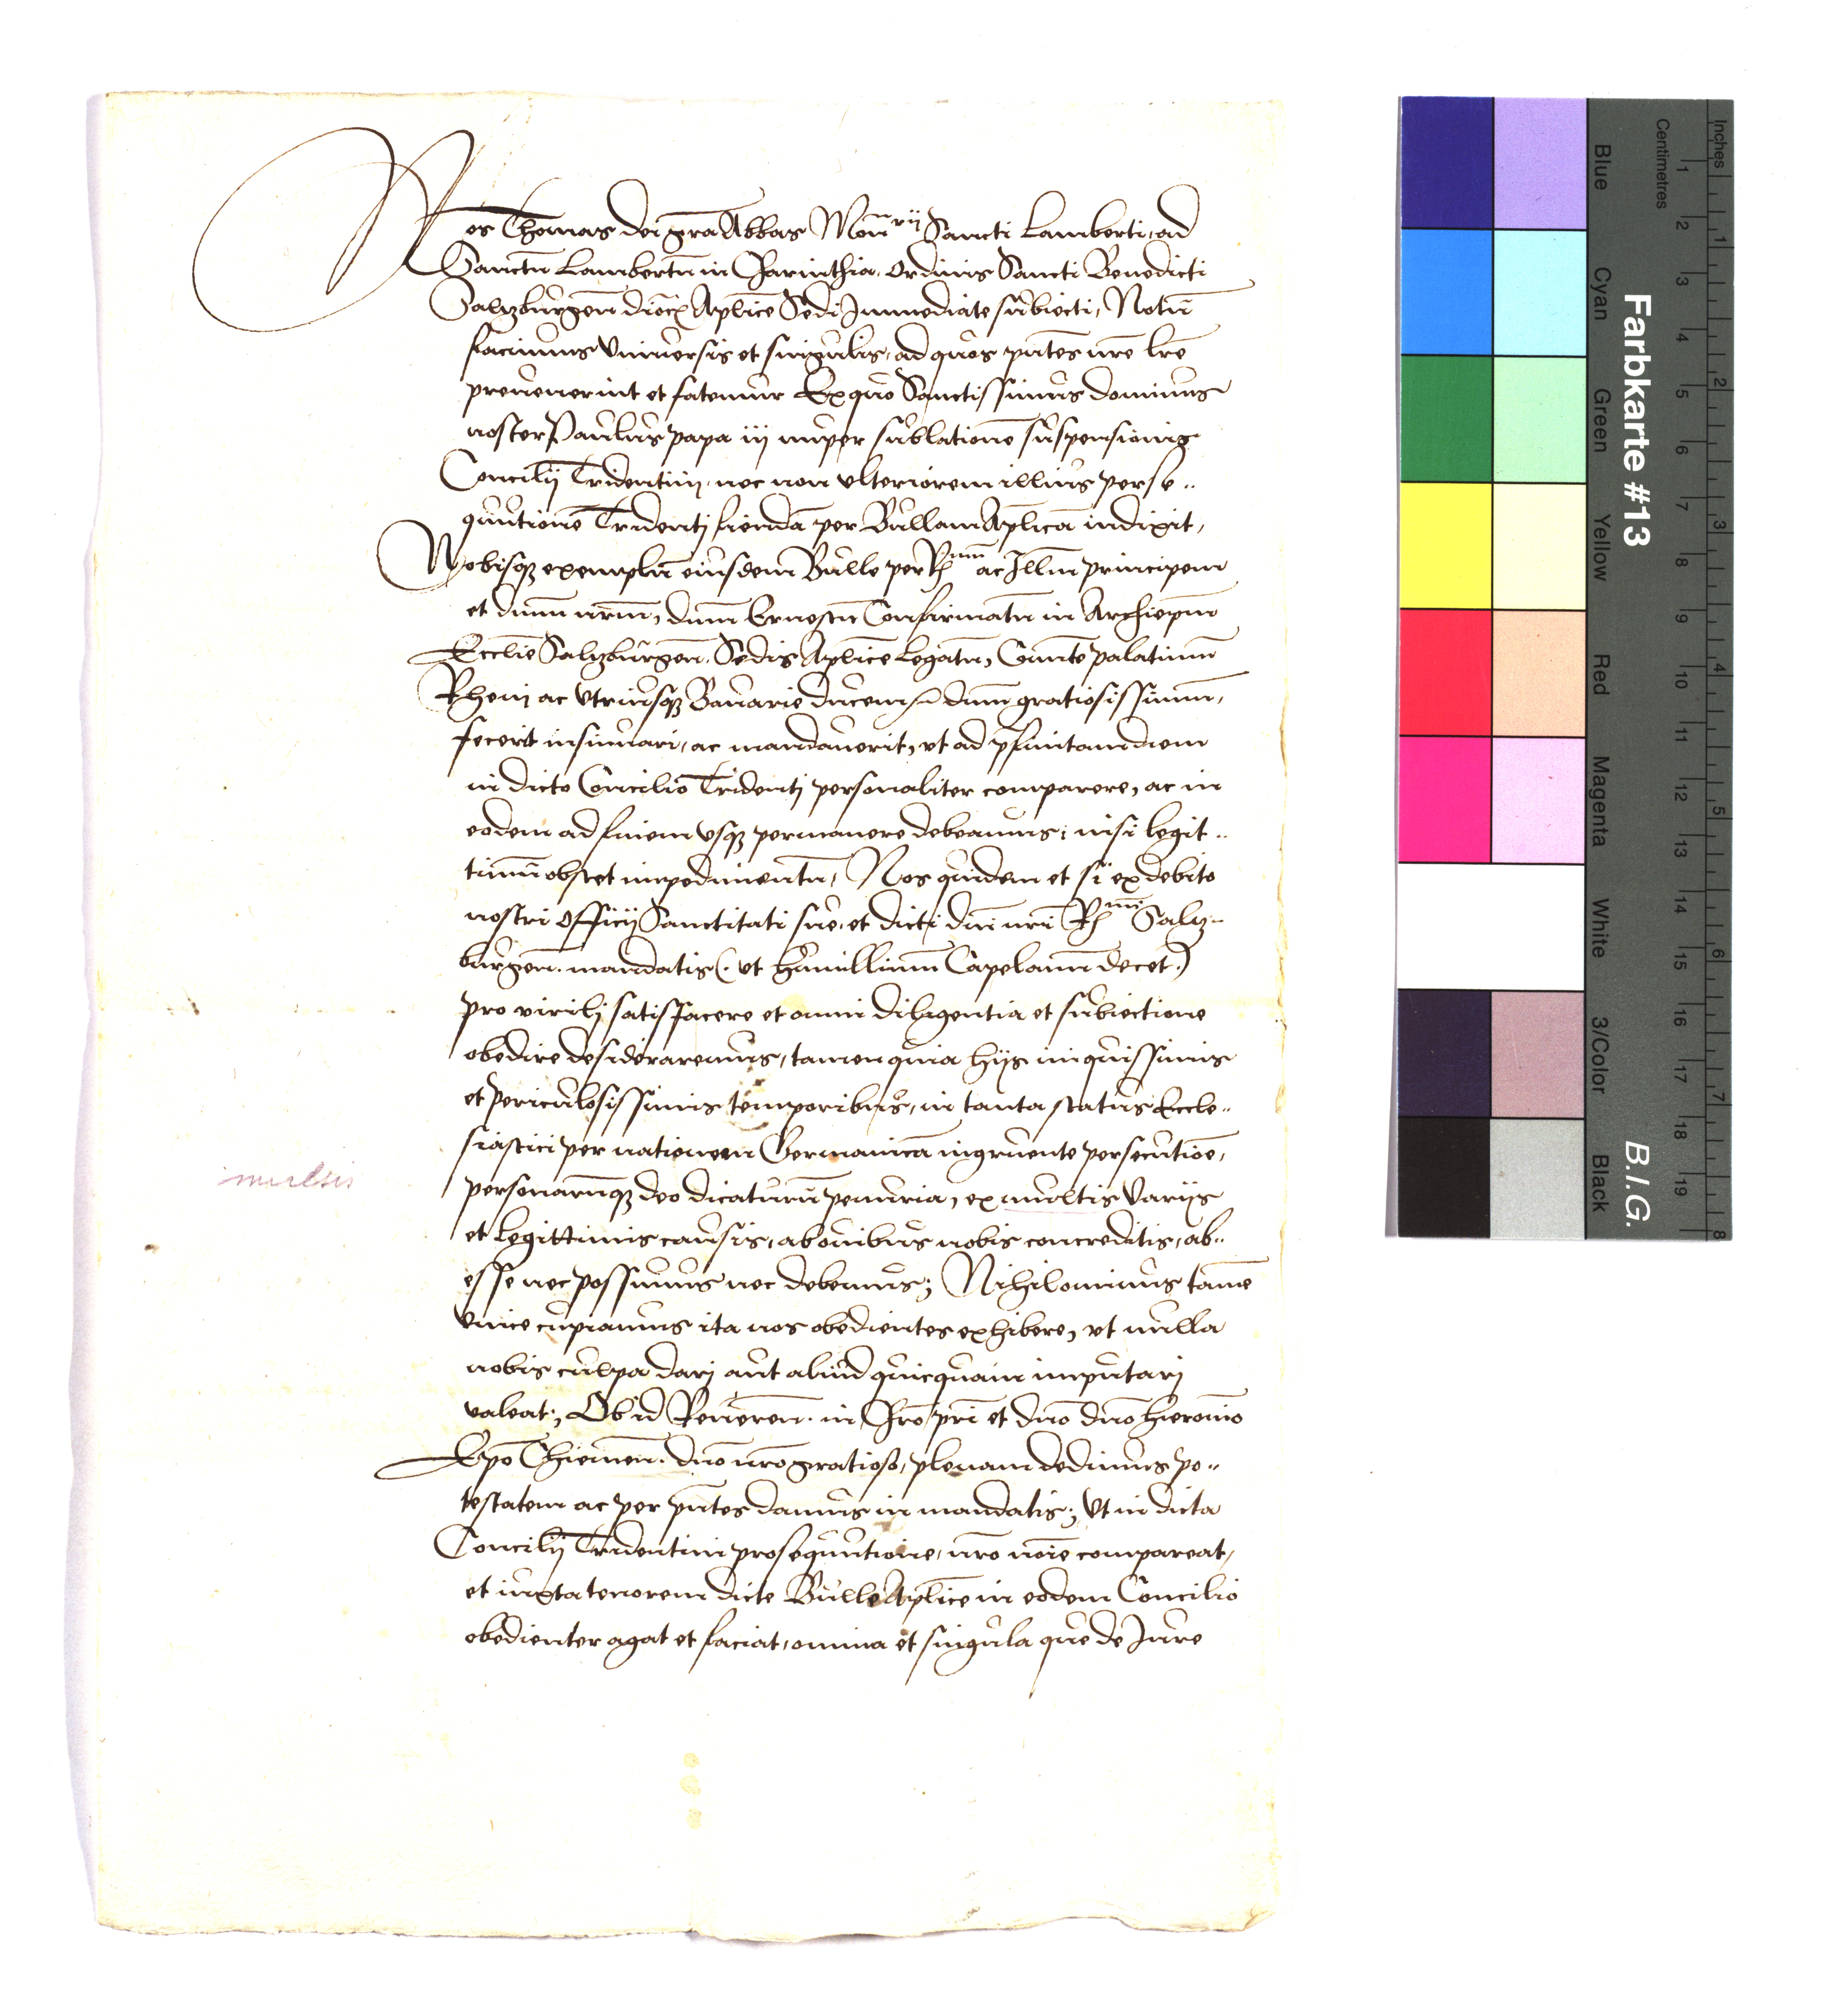 Nos Thomas dei gra͞ Abbas Mon͞rij Sancti Lamberti, ad
Sanctu͞ Lambertu͞ in Charinthia. Ordinis Sancti Benedicti
Salzburgen͞ dioc͞ Aplice͞ Sedi Immediate subiecti, Notu͞
facimus Vniuersis et singulis, ad quos pn͞tes nr͞e lr͞e
preuenerint et fatemur Ex quo Sanctissimus dominus
noster Paulus papa iij nuper sublatione͞ suspensionis
Concilij Tridentini, nec non vlteriorem illius perse„
quutione͞ Tridentj fienda͞ per Bullam Aplica͞ indixit,
Nobisq₃ exemplu͞ eiusdem Bulle per R͞mum ac Illm͞ principem
et dnm͞ nrm͞, dnm͞ Ernestu͞ Confirmatu͞ in Archiepm͞
Ecclie͞ Salzburgen͞. Sedis Aplice͞ Legatu͞, Comite͞ palatinum͞
Rheni ac Vtriusq₃ Bauarie ducem &c͞ dnm͞ gratiosissimum͞,
fecerit insinuari, ac mandauerit, vt ad p͞finitam diem
in dicto Concilio Tridentj personaliter comparere, ac in
eodem ad finem vsq₃ permanere debeamus; nisi legit„
timu͞ obstet impedimentu͞, Nos quidem et si ex debito
nostri Officij Sanctitati sue, et dicti dni͞ nri͞ R͞mi Salz„
burgen͞. mandatis (. vt humillimum͞ Capelanum͞ decet.)
pro virilj satisfacere et omni diligentia et subiectione
obedire desideraremus, tamen quia hijs iniquissimis
et periculosissimis temporibus, in tanta status Eccle„
siastici per nationem Germanica͞ ingruente persecutioe͞,
multis
personaru͞q₃ deo dicaturu͞ penuria, ex multis Varijs
et legittimis causis, ab ouibus nobis concreditis, ab„
esse nec possumus nec debemus; Nihilominus tame͞
Vnice cupiamus ita nos obedientes exhibere, vt nulla
nobis culpa darj aut aliud quicquam imputarj
valeat; Ob id Reueren͞. in Chro͞ pri͞ et dno͞ dno͞ hieronio͞
Epo͞ Chiemen͞. dno͞ nro͞ gratioso, plenam dedimus po„
testatem ac per pn͞tes damus in mandatis; Vt in dicta
Concilij Tridentini prosequutione, nro͞ noie͞ compareat,
et iuxta tenorem dicte Bulle Aplice͞ in eodem Concilio
obedienter agat et faciat, omnia et singula que de Jure
Farbkarte #13
B.I.G.
Centimetres
Inches
Blue
Cyan
Green
Yellow
Red
Magenta
White
3/Color
Black
1
2
3
4
5
6
7
8
9
10
11
12
13
14
15
16
17
18
19
1
2
3
4
5
6
7
8